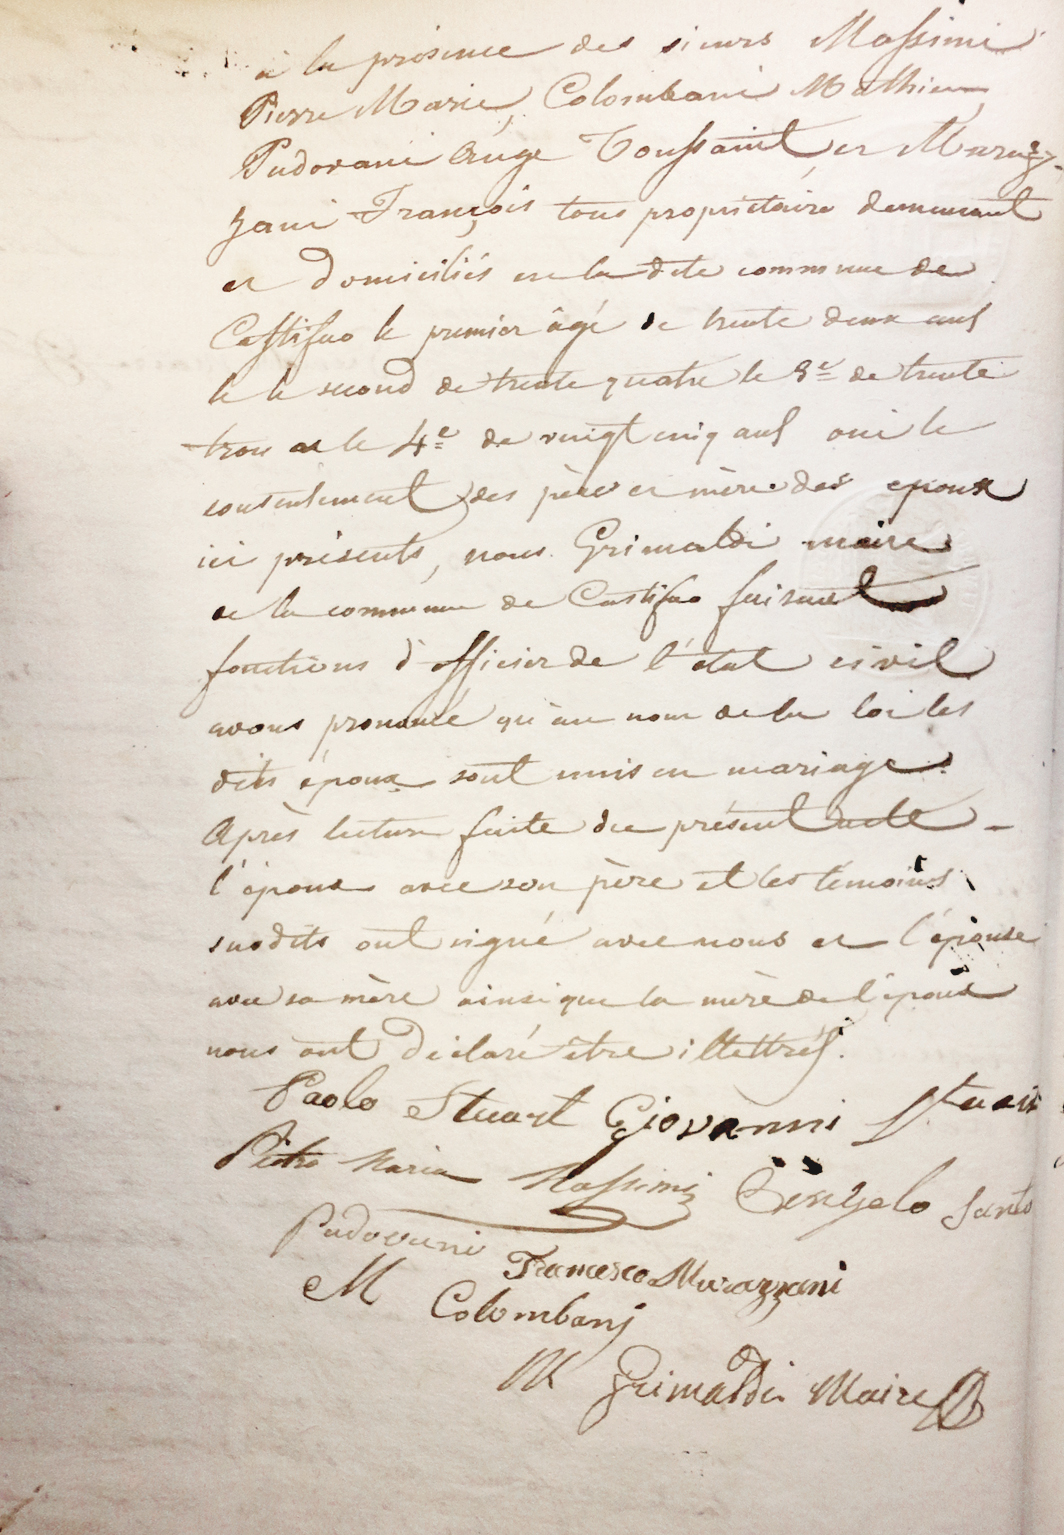 à la présence des sieurs Massimi
Pierre Marie, Colombani Mathieu,
Padovani Ange Toussaint et Muraz-
zani François tous propriétaire demeurant
et domiciliés en la dite commune de
Castifao le premier âgé de trente deux ans
le le second de trente quatre le 3e de trente
trois et le 4e de vingt cinq ans oui le
consentement des père et mère des epoux
ici présents, nous Grimaldi maire
de la commune de Castifao faisant
fonctions d'officier de l'état civil
avons prononcé qu'au nom de la loi les
dits époux sont unis en mariage.
Après lecture faite du présent acte -
l'époux avec son père et les témoins
susdits ont signé avec nous et l'épouse
avec sa mère ainsi que la mère de l'époux
nous ont déclaré être illettrés.
Paolo Stuart Giovanni Stuart
Pietro Maria Massimi Angelo Santo
Padovani Francesco Murazzani
M Colombanj
M Grimaldi Maire